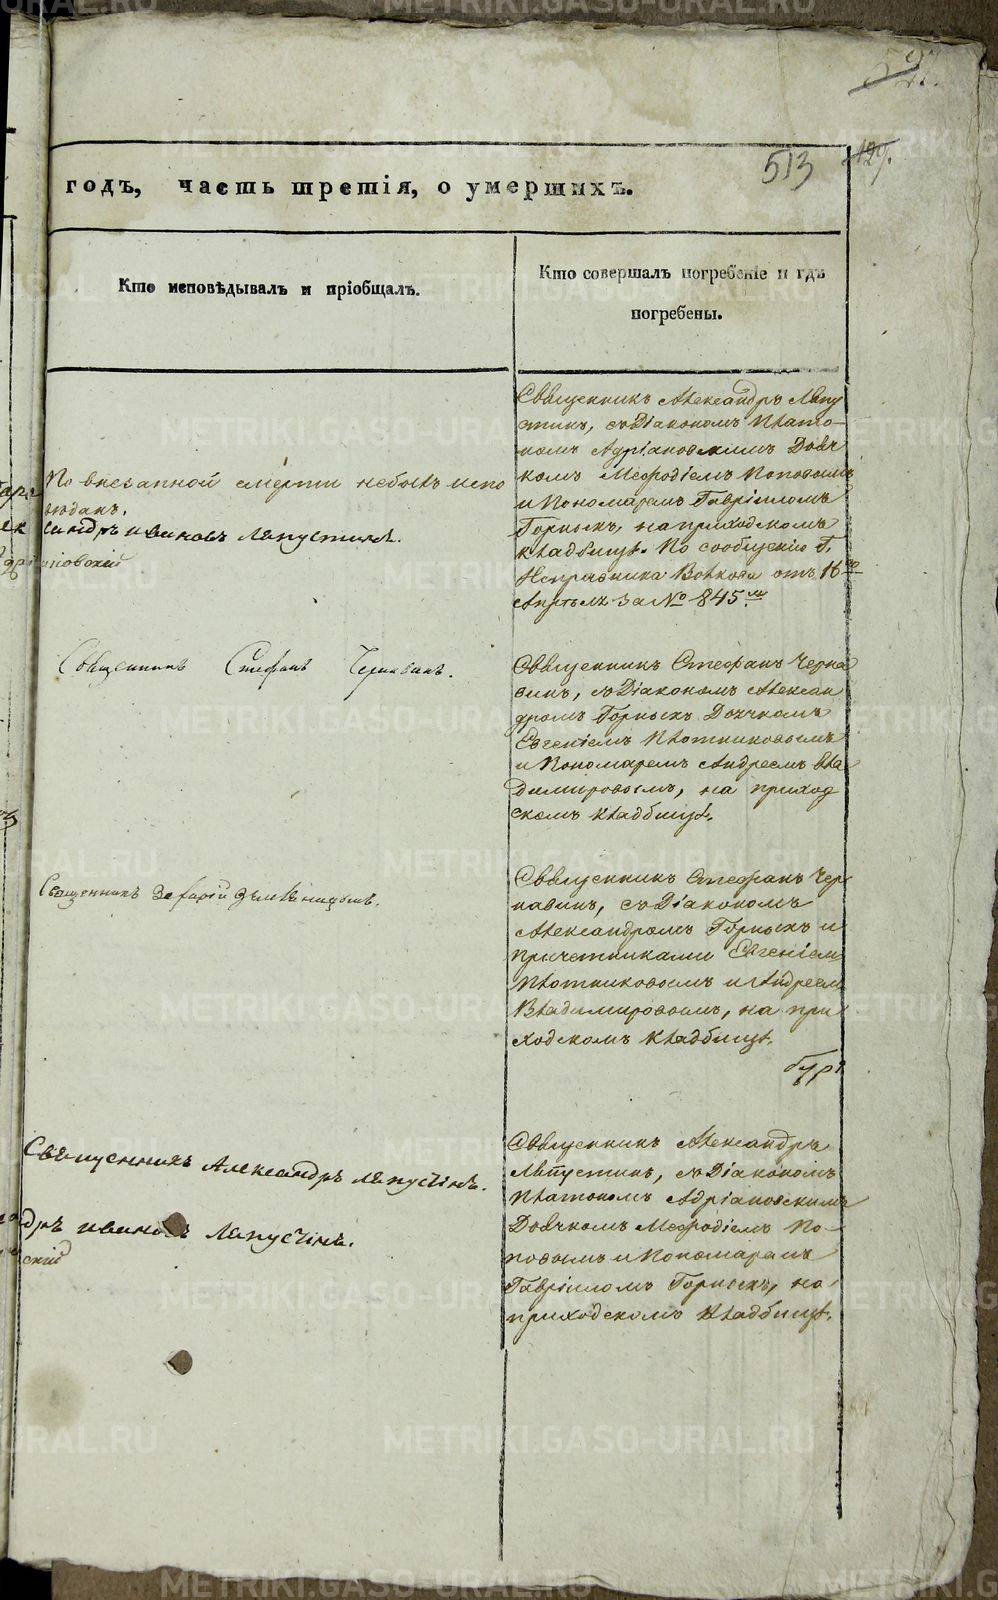 513
годъ, часть третія, о умершихъ.
Кто исповѣдывалъ и пріобщалъ.
Кто совершалъ погребеніе и гдѣ
погребены.
По внезапной смерти небылъ испо
вѣданъ.
сандръ ивановъ Ляпустинъ.
ановскій
Священникъ Александръ Ляпу
стинъ, съ Діакономъ Плато-
номъ Адріановскимъ Дьяч
комъ Меѳодіемъ Поповымъ
и Пономаремъ Гавріиломъ
Горныхъ, на приходскомъ
кладбищѣ. По сообщенію Г.
Исправника Волкова отъ 16го
Апрѣля за № 845.мъ
Священникъ Стефанъ Чернавинъ.
Священникъ Стефанъ Черна
винъ, съ Діакономъ Алексан
дромъ Горныхъ Дьячкомъ
Евгеніемъ Плотниковымъ
и Пономаремъ Андреемъ Вла
димировымъ, на приход
скомъ кладбищѣ.
Священникъ
Священникъ Стефанъ Чер
навинъ, съ Діакономъ
Александромъ Горныхъ и
причетниками Евгеніем
Плотниковымъ и Андреем
Владимировымъ, на при
ходскомъ кладбищѣ.
Священникъ Александръ Ляпустинъ.
дръ ивановъ Ляпустинъ.
скій
Священникъ Александръ
Ляпустинъ, съ Діакономъ
Платономъ Адріановскимъ
Дьячкомъ Меѳодіемъ По-
повымъ и Пономаремъ
Гавріиломъ Горныхъ, на
приходскомъ кладбищѣ.
METRIKI.GASO-URAL.RU